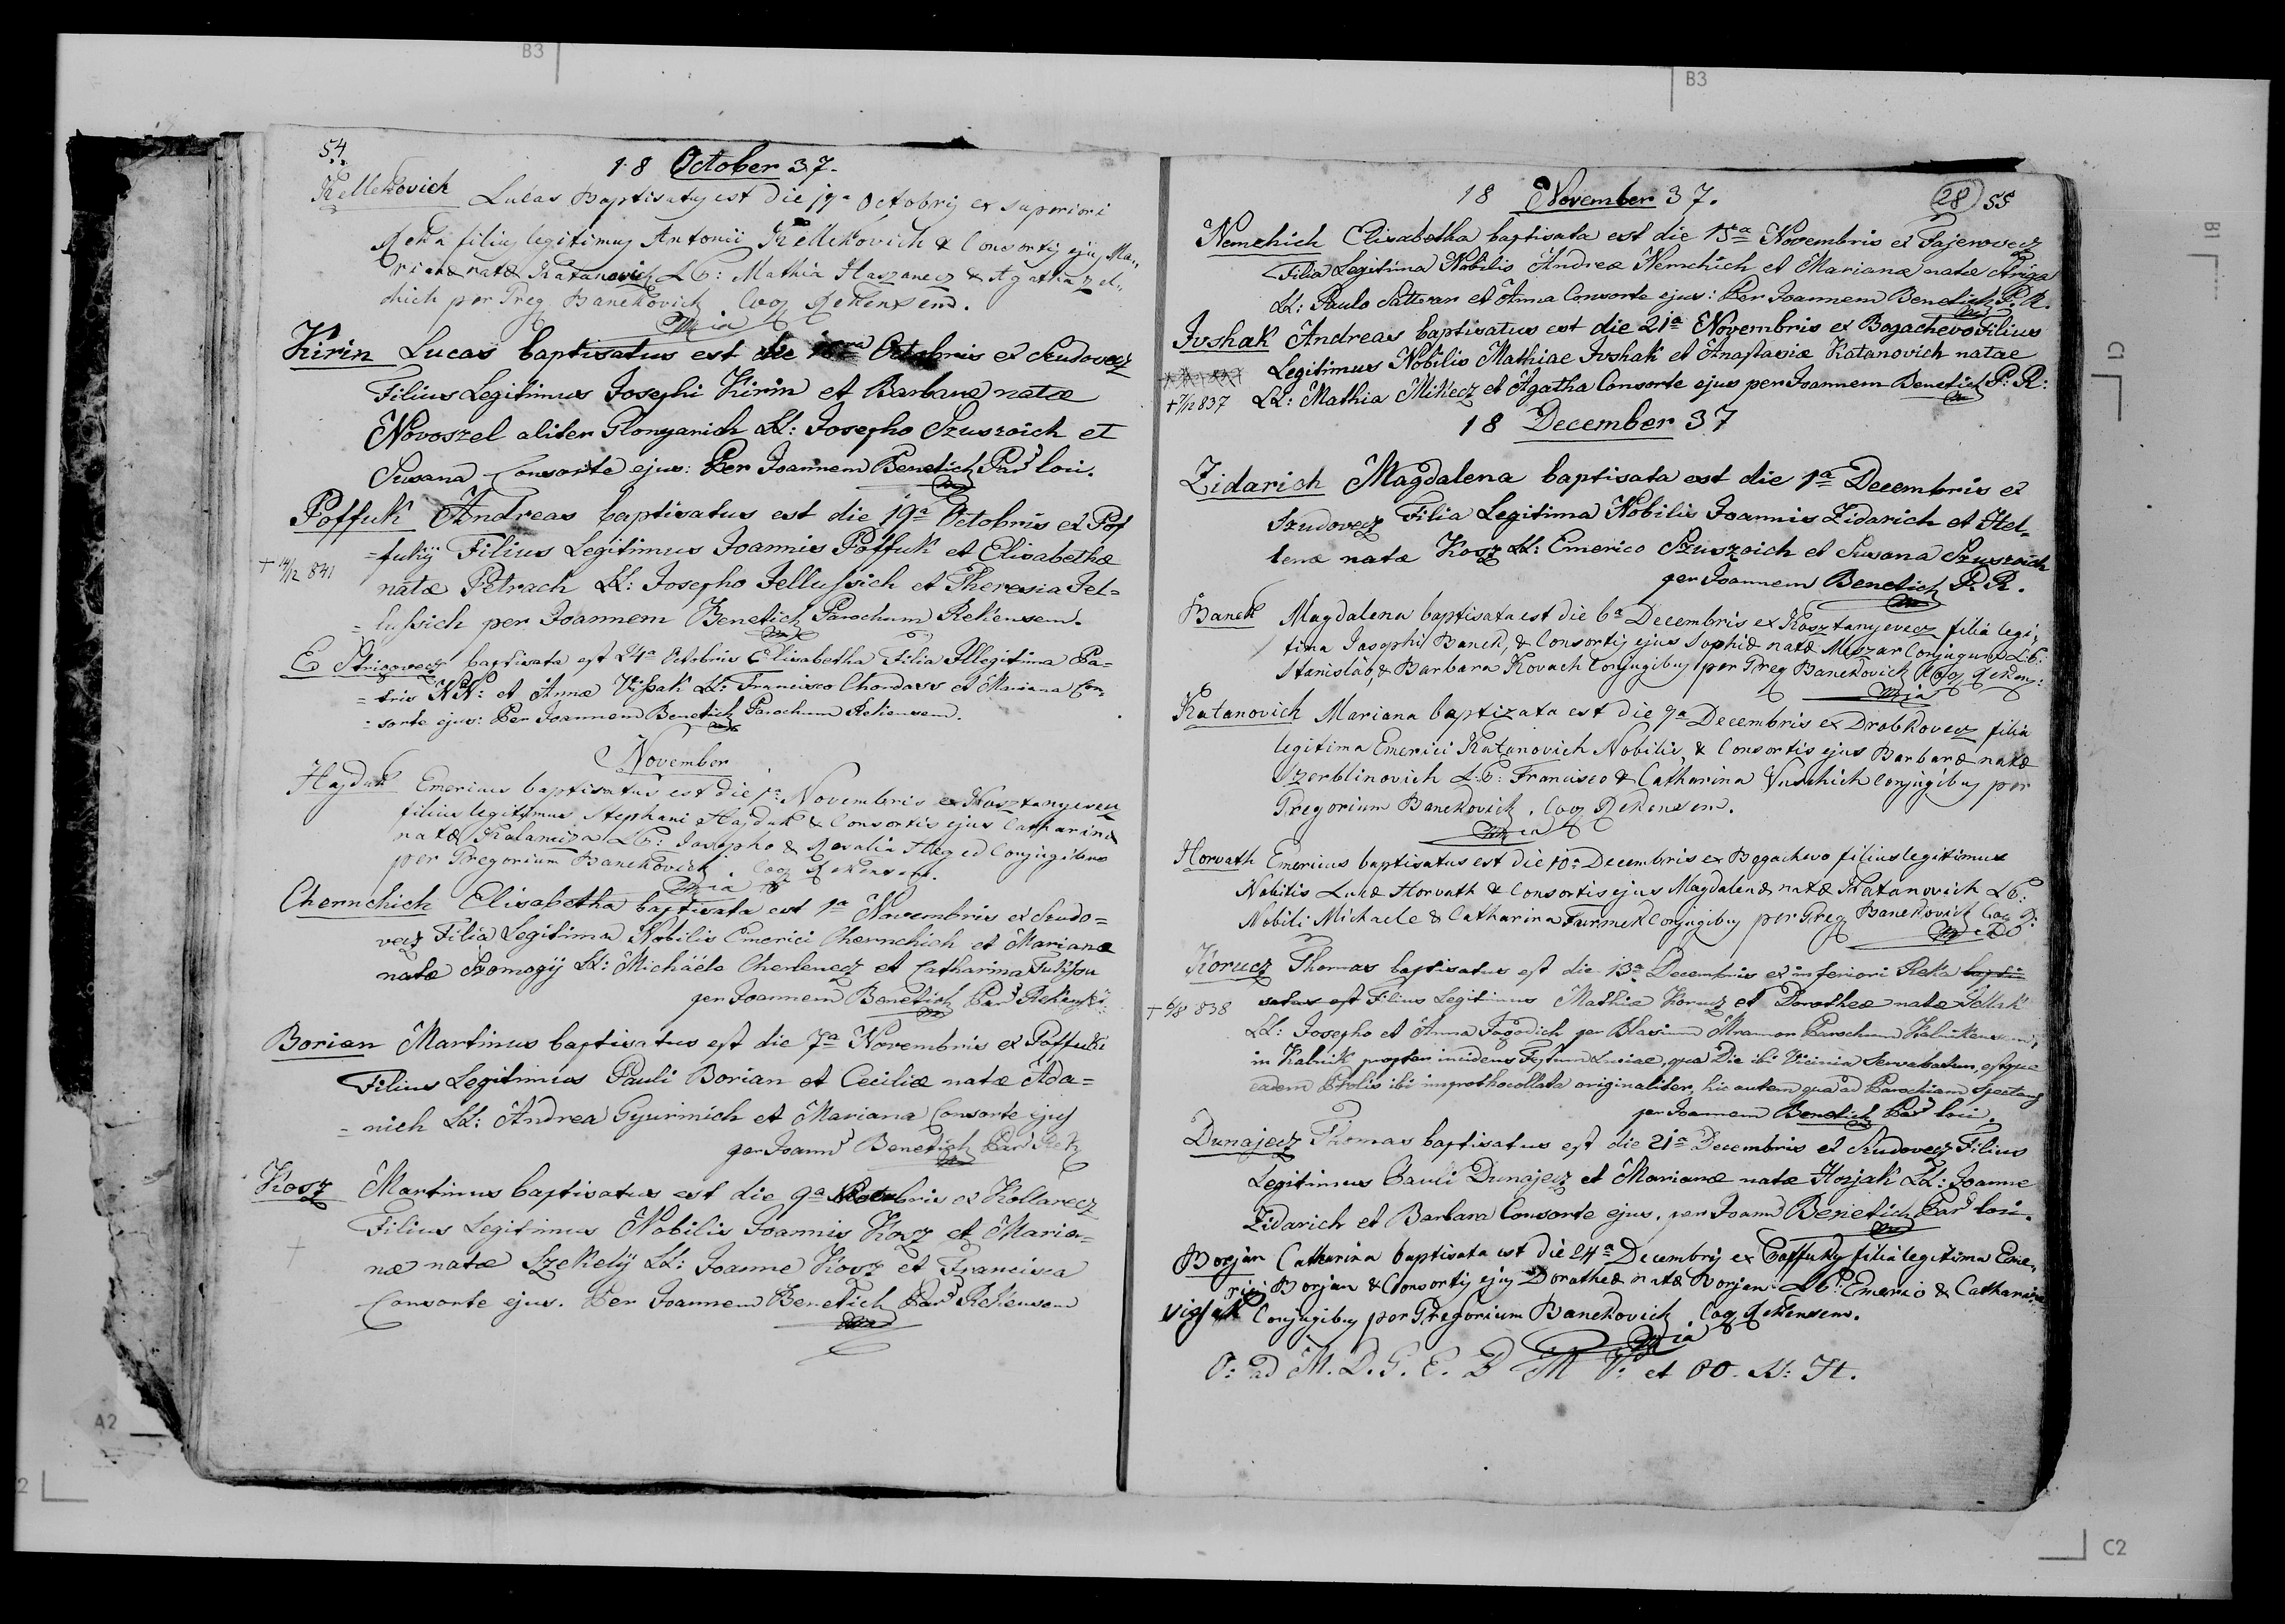 B3
B3
54.
18 October 37.
Kellekovich Lucas Baptisatus est die 17a Octobris ex superiori
Reka filius legitimus Antonii Kellekovich & Consortis ejus Ma„
rianæ natæ Katanovich LP: Mathia Haszanecz & Agatha
per Greg Banekovich Coop Rekensem.
Kirin Lucas baptisatus est die Octobris ex Szudovecz
Filius Legitimus Josephi Kirin et Barbaræ natæ
Novoszel aliter Glongarich LL: Josepho Szuszoich et
Susana Consorte ejus: Per Joannem Benetich Par loci.
Poffuk Andreas baptisatus est die 19a Octobris ex Pof
=fukij Filius Legitimus Joannis Poffuk et Elisabethæ
+ 14/12 841 natæ Petrach LL: Josepho Jellussich et Theresia Jel=
=lussich per Joannem Benetich Parochum Rekensem.
Ex Strigovecz baptisata est 24a Octobris Elisabetha Filia Illegitima Pa=
=tris NN: et Annæ Vissak LL: Francisco Chordass et Mariana Con=
=sorte ejus: Per Joannem Benetich Parochum Rekensem.
November
Hajduk Emericus baptisatus est die 1a Novembris ex Kosztanyevecz
filius legitimus Stephani Hajduk & Consortis ejus Catharinæ
natæ Kalamiza LP: Josepho & Rosalia Heged Conjugibus
per Gregorium Banekovich Coop Rekensem.
Chernchich Elisabetha baptisata est 1a Novembris ex Szudo=
vecz Filia Legitima Nobilis Emerici Chernchich et Marianæ
natæ Somogÿ LL: Michaele Cherlenecz et Catharina
per Joannem Benetich Par
Borian Martinus baptisatus est die 7a Novembris ex Poffuki
Filius Legitimus Pauli Borian et Ceciliæ natæ Ada=
=nich LL: Andrea Gyurinich et Mariana Consorte ejus
per Joann Benetich Par Rek
Kosz Martinus baptisatus est die 9a ex Kollarecz
Filius Legitimus Nobilis Joannis Kosz et Maria=
+ næ natæ Szekelÿ LL: Joanne Kosz et Francisca
Consorte ejus. Per Joannem Benetich Par Rekensem
18 November 37. 28 55
Nemchich Elisabetha baptisata est die 15a Novembris ex Fajerovecz
Filia Legitima Nobilis Andreæ Nemchich et Marianæ natæ Friga
LL: Paulo Sattvar et Anna Consorte ejus: Per Joannem Benetich P. R.
Ivshak Andreas baptisatus est die 21a Novembris ex Bogachevo Filius
Legitimus Nobilis Mathiae Ivshak et Anastasiæ Katanovich natae
+ 7/12 837 LL: Mathia Mikecz et Agatha Consorte ejus per Joannem Benetich P: R:
18 December 37
Zidarich Magdalena baptisata est die 1a Decembris ex
Szudovecz Filia Legitima Nobilis Joannis Zidarich et Hel=
lenæ natæ Kosz LL: Emerico Szuszoich et Susana Szuszoich
per Joannem Benetich P. R.
Banek Magdalena baptisata est die 6a Decembris ex Kosztanyevecz filia legi„
tima Josephi Banek, & Consortis ejus Sophiæ natæ Meszar Conjugum LP:
Stanislao, & Barbara Kovach Conjugibus per Greg Banekovich Coop Reken:
Katanovich Mariana baptizata est die 7a Decembris ex Drobkovecz filia
legitima Emerici Katanovich Nobilis, & Consortis ejus Barbaræ natæ
Szerblinovich LP: Francisco & Catharina Vuschich Conjugibus per
Gregorium Banekovich. Coop Rekensem.
Horvath Emericus baptisatus est die 10a Decembris ex Bogachevo filius legitimus
Nobilis Lucæ Horvath & Consortis ejus Magdalenæ natæ Katanovich LP:
Nobili Michaele & Catharina Furmek Conjugibus per Greg Banekovich Coop R:
Korucz Thomas baptisatus est die 13a Decembris ex inferiori Reka bapti
+ 6/8 838 satus est Filius Legitimus Mathiæ Korucz et Dorotheæ natæ Sollak
LL: Josepho et Anna Jagodich per Blasium Mramor Parochum Kalnikensem;
in Kalnik propter incidens Festum Luciae, qua Die ibi Vicinia Servabatur, estque
eadem Prolis ibi improthocollata originaliter, hic autem qua ad Parochiam spectans
per Joannem Benetich Par loci
Dunajecz Thomas baptisatus est die 21a Decembris ex Szudovecz Filius
Legitimus Pauli Dunajecz et Marianæ natæ Hosjak LL: Joanne
Zidarich et Barbara Consorte ejus. per Joann Benetich Par loci.
Borjan Catharina baptisata est die 24a Decembris ex Poffuky filia legitima Eme„
rici Borjan & Consortis ejus Dorotheæ natæ Borjan LP: Emerico & Catharina
Visjak Conjugibus per Gregorium Banekovich, Coop Rekensem.
O: ad M. D. G. E. B M V: et OO. SS: H.
B1
C1
A2
2
C2